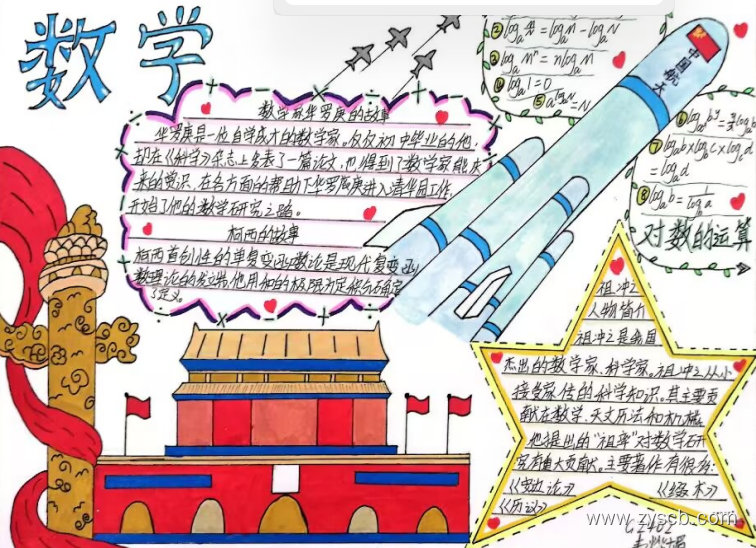 数学
数学家华罗庚的故事
华罗庚是一位自学成才的数学家。仅仅初中毕业的他,
却在《科学》杂志上发表了一篇论文,也得到了数学家熊庆
来的赏识,在各方面的帮助下华罗庚进入清华园工作,
开始了他的数学研究之路。
柯西的故事
柯西首创性的单复变函数论是现代复变函
数理论的发端,他用
定义。
中国航天
② logₐ M/N = logₐM - logₐN
③ logₐMⁿ = nlogₐM
④ logₐ1 = 0
⑤ a^(logₐN) = N
⑦ logₐb×log_b c×log_c d
= logₐd
⑧ logₐb = 1/(log_b a)
对数的运算
祖冲之
人物简介
祖冲之是我国
杰出的数学家、科学家。祖冲之从小
接受家传的科学知识。其主要贡
献在数学、天文历法和机械。
他提出的“祖率”对数学研
究有重大贡献。主要著作有很多:
《安边论》 《缀术》
《历议》
www.zyscb.com
G2402